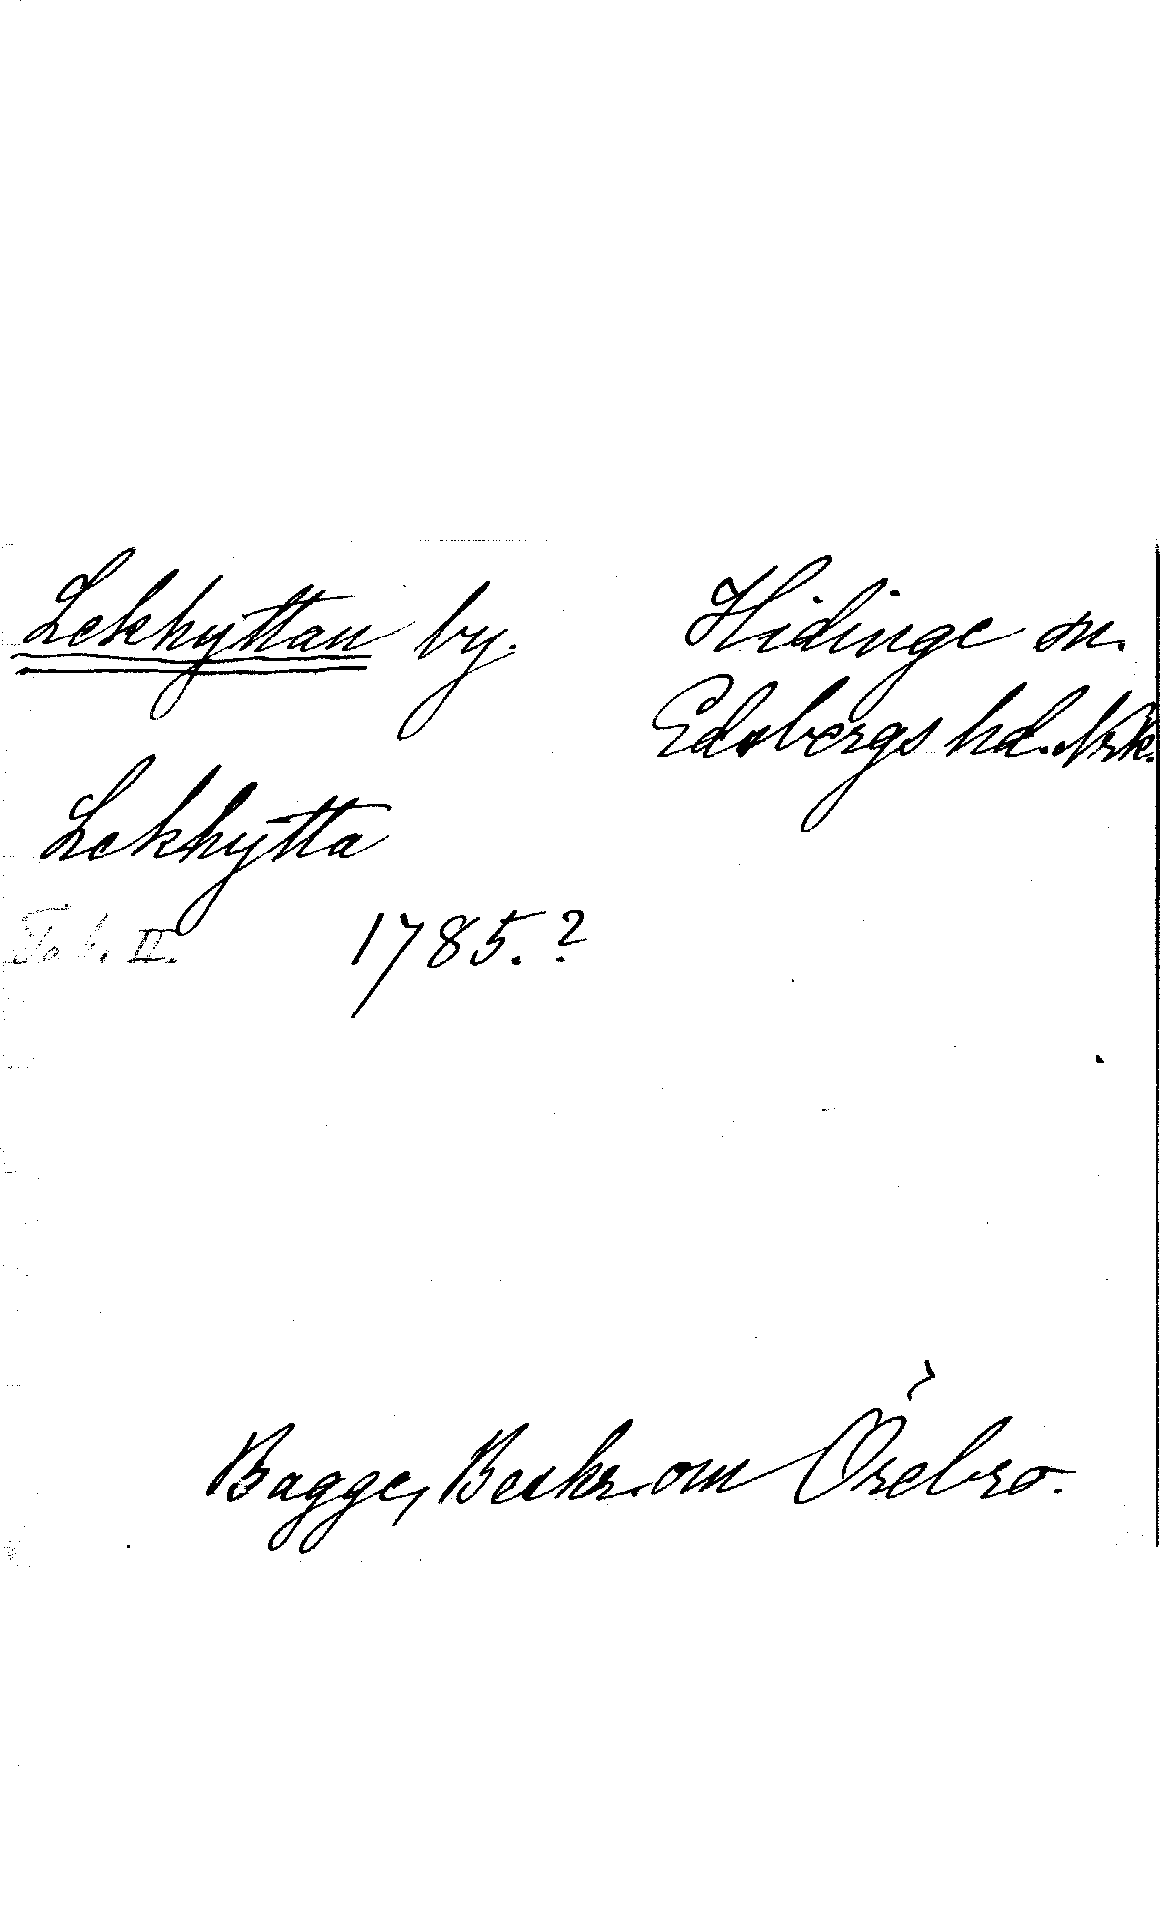 Lekhyttan by.
Hidinge sn.
Edsbergs hd. Nrk.
Lekhytta
Tab. II. 1785.?
Bagge, Beskr. om Örebro.